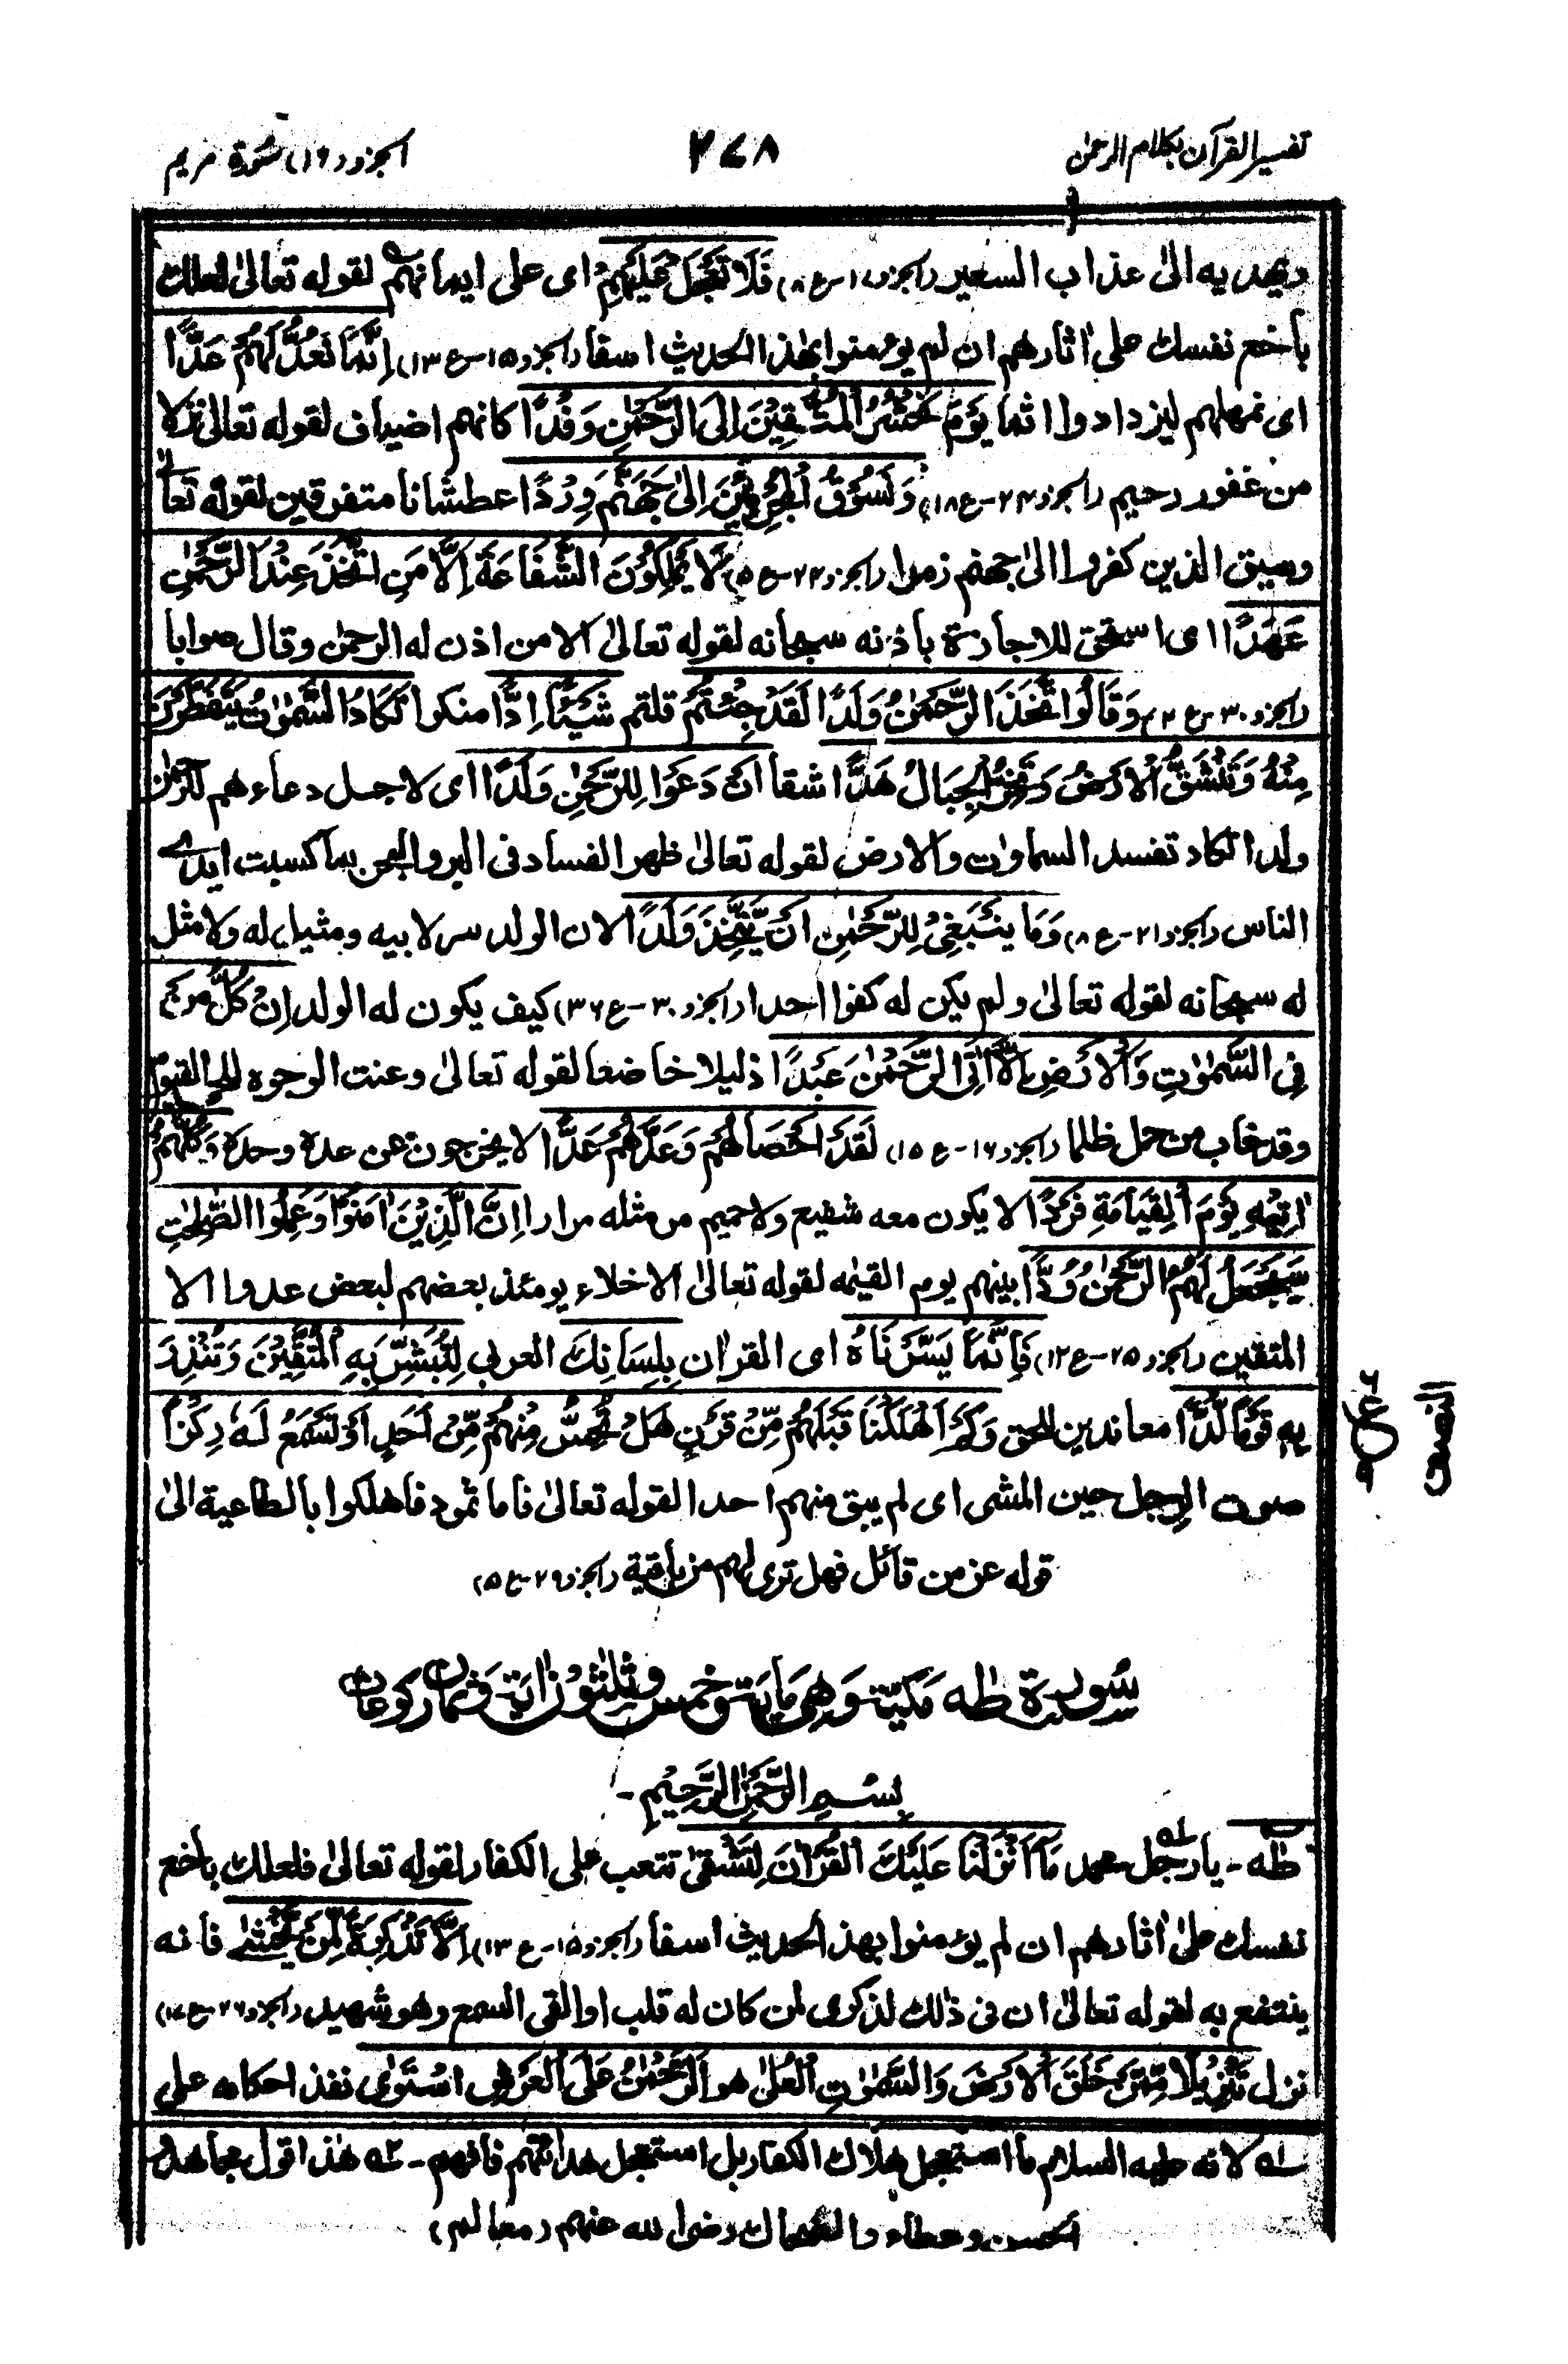 تفسير القرآن بكلام الرحمن
٢٧٨
الجزو (١٦) سورة مريم
ويهديه الىٰ عذاب السعير (الجزو ١٧-ع ٨) فَلَا تَعْجَلْ عَلَيْهِمْ اى على ايمانهم لقوله تعالىٰ لعلك
باخع نفسك علىٰ اٰثارهم ان لم يؤمنوا بهٰذا الحديث اسفا (الجزو ١٥-ع ١٣) اِنَّمَا نَعُدُّ لَهُمْ عَدًّا
اى نمهلهم ليزدادوا اثما يَوْمَ نَحْشُرُ الْمُتَّقِيْنَ اِلَى الرَّحْمٰنِ وَفْدًا كانهم اضياف لقوله تعالىٰ نزلا
من غفور رحيم (الجزو ٢٤-ع ١٨) وَنَسُوْقُ الْمُجْرِمِيْنَ اِلىٰ جَهَنَّمَ وِرْدًا عطشانا متفرقين لقوله تعالىٰ
وسيق الذين كفروا الىٰ جهنم زمرا (الجزو ٢٤-ع ٥) لَا يَمْلِكُوْنَ الشَّفَاعَةَ اِلَّا مَنِ اتَّخَذَ عِنْدَ الرَّحْمٰنِ
عَهْدًا اى استحق للاجازة باذنه سبحانه لقوله تعالىٰ الا من اذن له الرحمٰن وقال صوابا
(الجزو ٣٠-ع ٢) وَقَالُوا اتَّخَذَ الرَّحْمٰنُ وَلَدًا لَقَدْ جِئْتُمْ قلتم شَيْئًا اِدًّا منكرا تَكَادُ السَّمٰوٰتُ يَتَفَطَّرْنَ
مِنْهُ وَتَنْشَقُّ الْاَرْضُ وَتَخِرُّ الْجِبَالُ هَدًّا شقا اَنْ دَعَوْا لِلرَّحْمٰنِ وَلَدًا اى لاجل دعاءهم للرحمٰن
ولدا تكاد تفسد السماوات والارض لقوله تعالىٰ ظهر الفساد فى البر والبحر بما كسبت ايدى
الناس (الجزو ٢١-ع ٨) وَمَا يَنْبَغِىْ لِلرَّحْمٰنِ اَنْ يَّتَّخِذَ وَلَدًا لان الولد سر لابيه ومثيل له ولا مثل
له سبحانه لقوله تعالىٰ ولم يكن له كفوا احد (الجزو ٣٠-ع ٣٦) كيف يكون له الولد اِنْ كُلُّ مَنْ
فِى السَّمٰوٰتِ وَالْاَرْضِ اِلَّا اٰتِى الرَّحْمٰنِ عَبْدًا ذليلا خاضعا لقوله تعالىٰ وعنت الوجوه للحى القيوم
وقد خاب من حمل ظلما (الجزو ١٦-ع ١٥) لَقَدْ اَحْصَاهُمْ وَعَدَّهُمْ عَدًّا لا يخرجون عن عدة وحدة وَكُلُّهُمْ
اٰتِيْهِ يَوْمَ الْقِيَامَةِ فَرْدًا لا يكون معه شفيع ولا حميم مر مثله مرارا اِنَّ الَّذِيْنَ اٰمَنُوْا وَعَمِلُوا الصّٰلِحٰتِ
سَيَجْعَلُ لَهُمُ الرَّحْمٰنُ وُدًّا بينهم يوم القيٰمه لقوله تعالىٰ الاخلاء يومئذ بعضهم لبعض عدوا الا
المتقين (الجزو ٢٥-ع ١٢) فَاِنَّمَا يَسَّرْنَاهُ اى القراٰن بِلِسَانِكَ العربى لِتُبَشِّرَ بِهِ الْمُتَّقِيْنَ وَتُنْذِرَ
بِهٖ قَوْمًا لُّدًّا معاندين للحق وَكَمْ اَهْلَكْنَا قَبْلَهُمْ مِّنْ قَرْنٍ هَلْ تُحِسُّ مِنْهُمْ مِّنْ اَحَدٍ اَوْ تَسْمَعُ لَهٗ رِكْزًا
صوت الرجل حين المشى اى لم يبق منهم احدا لقوله تعالىٰ فاما ثمود فاهلكوا بالطاغية الىٰ
قوله عز من قائل فهل ترى لهم من باقية (الجزو ٢٩-ع ٥)
سُورة طٰه مَكيّة وَهِىَ مَايَة وخمس وثلٰثون اٰية وثمان ركوعات
بِسْمِ الرَّحْمٰنِ الرَّحِيْمِ-
طٰه- يا رجل محمد مَا اَنْزَلْنَا عَلَيْكَ الْقُرْاٰنَ لِتَشْقىٰ تتعب على الكفار لقوله تعالىٰ فلعلك باخع
نفسك علىٰ اٰثارهم ان لم يؤمنوا بهذ الحديث اسفا (الجزو ١٥-ع ١٣) اِلَّا تَذْكِرَةً لِّمَنْ يَّخْشٰى فانه
ينتفع به لقوله تعالىٰ ان فى ذٰلك لذكرى لمن كان له قلب او القى السمع وهو شهيد (الجزو ٢٦-ع ١٧)
نزل تَنْزِيْلًا مِّمَّنْ خَلَقَ الْاَرْضَ وَالسَّمٰوٰتِ الْعُلىٰ هو الرَّحْمٰنُ عَلَى الْعَرْشِ اسْتَوٰى نفذ احكامه على
له لانه عليه السلام ما استعجل هلاك الكفار بل استعجل هدايتهم فافهم- ٢ه هٰذا قول مجاهد و
الحسن وعطاء والضحاك رضى الله عنهم (معالم)